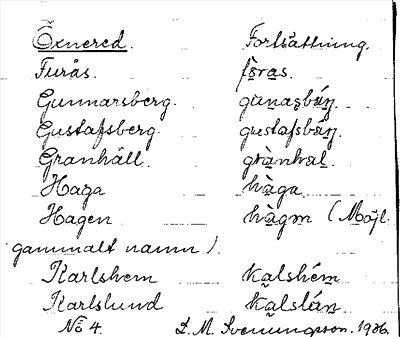 Öxnered. Fortsättning.
Furås. fùras.
Gunnarsberg. gunasbárj.
Gustafsberg. gustafsbárj.
Granhäll. grànhal.
Haga hàga.
Hagen hàgm (Möjl.
gammalt namn).
Karlshem kalshém
Karlslund kalslún
No 4. D. M. Svenungsson. 1906.